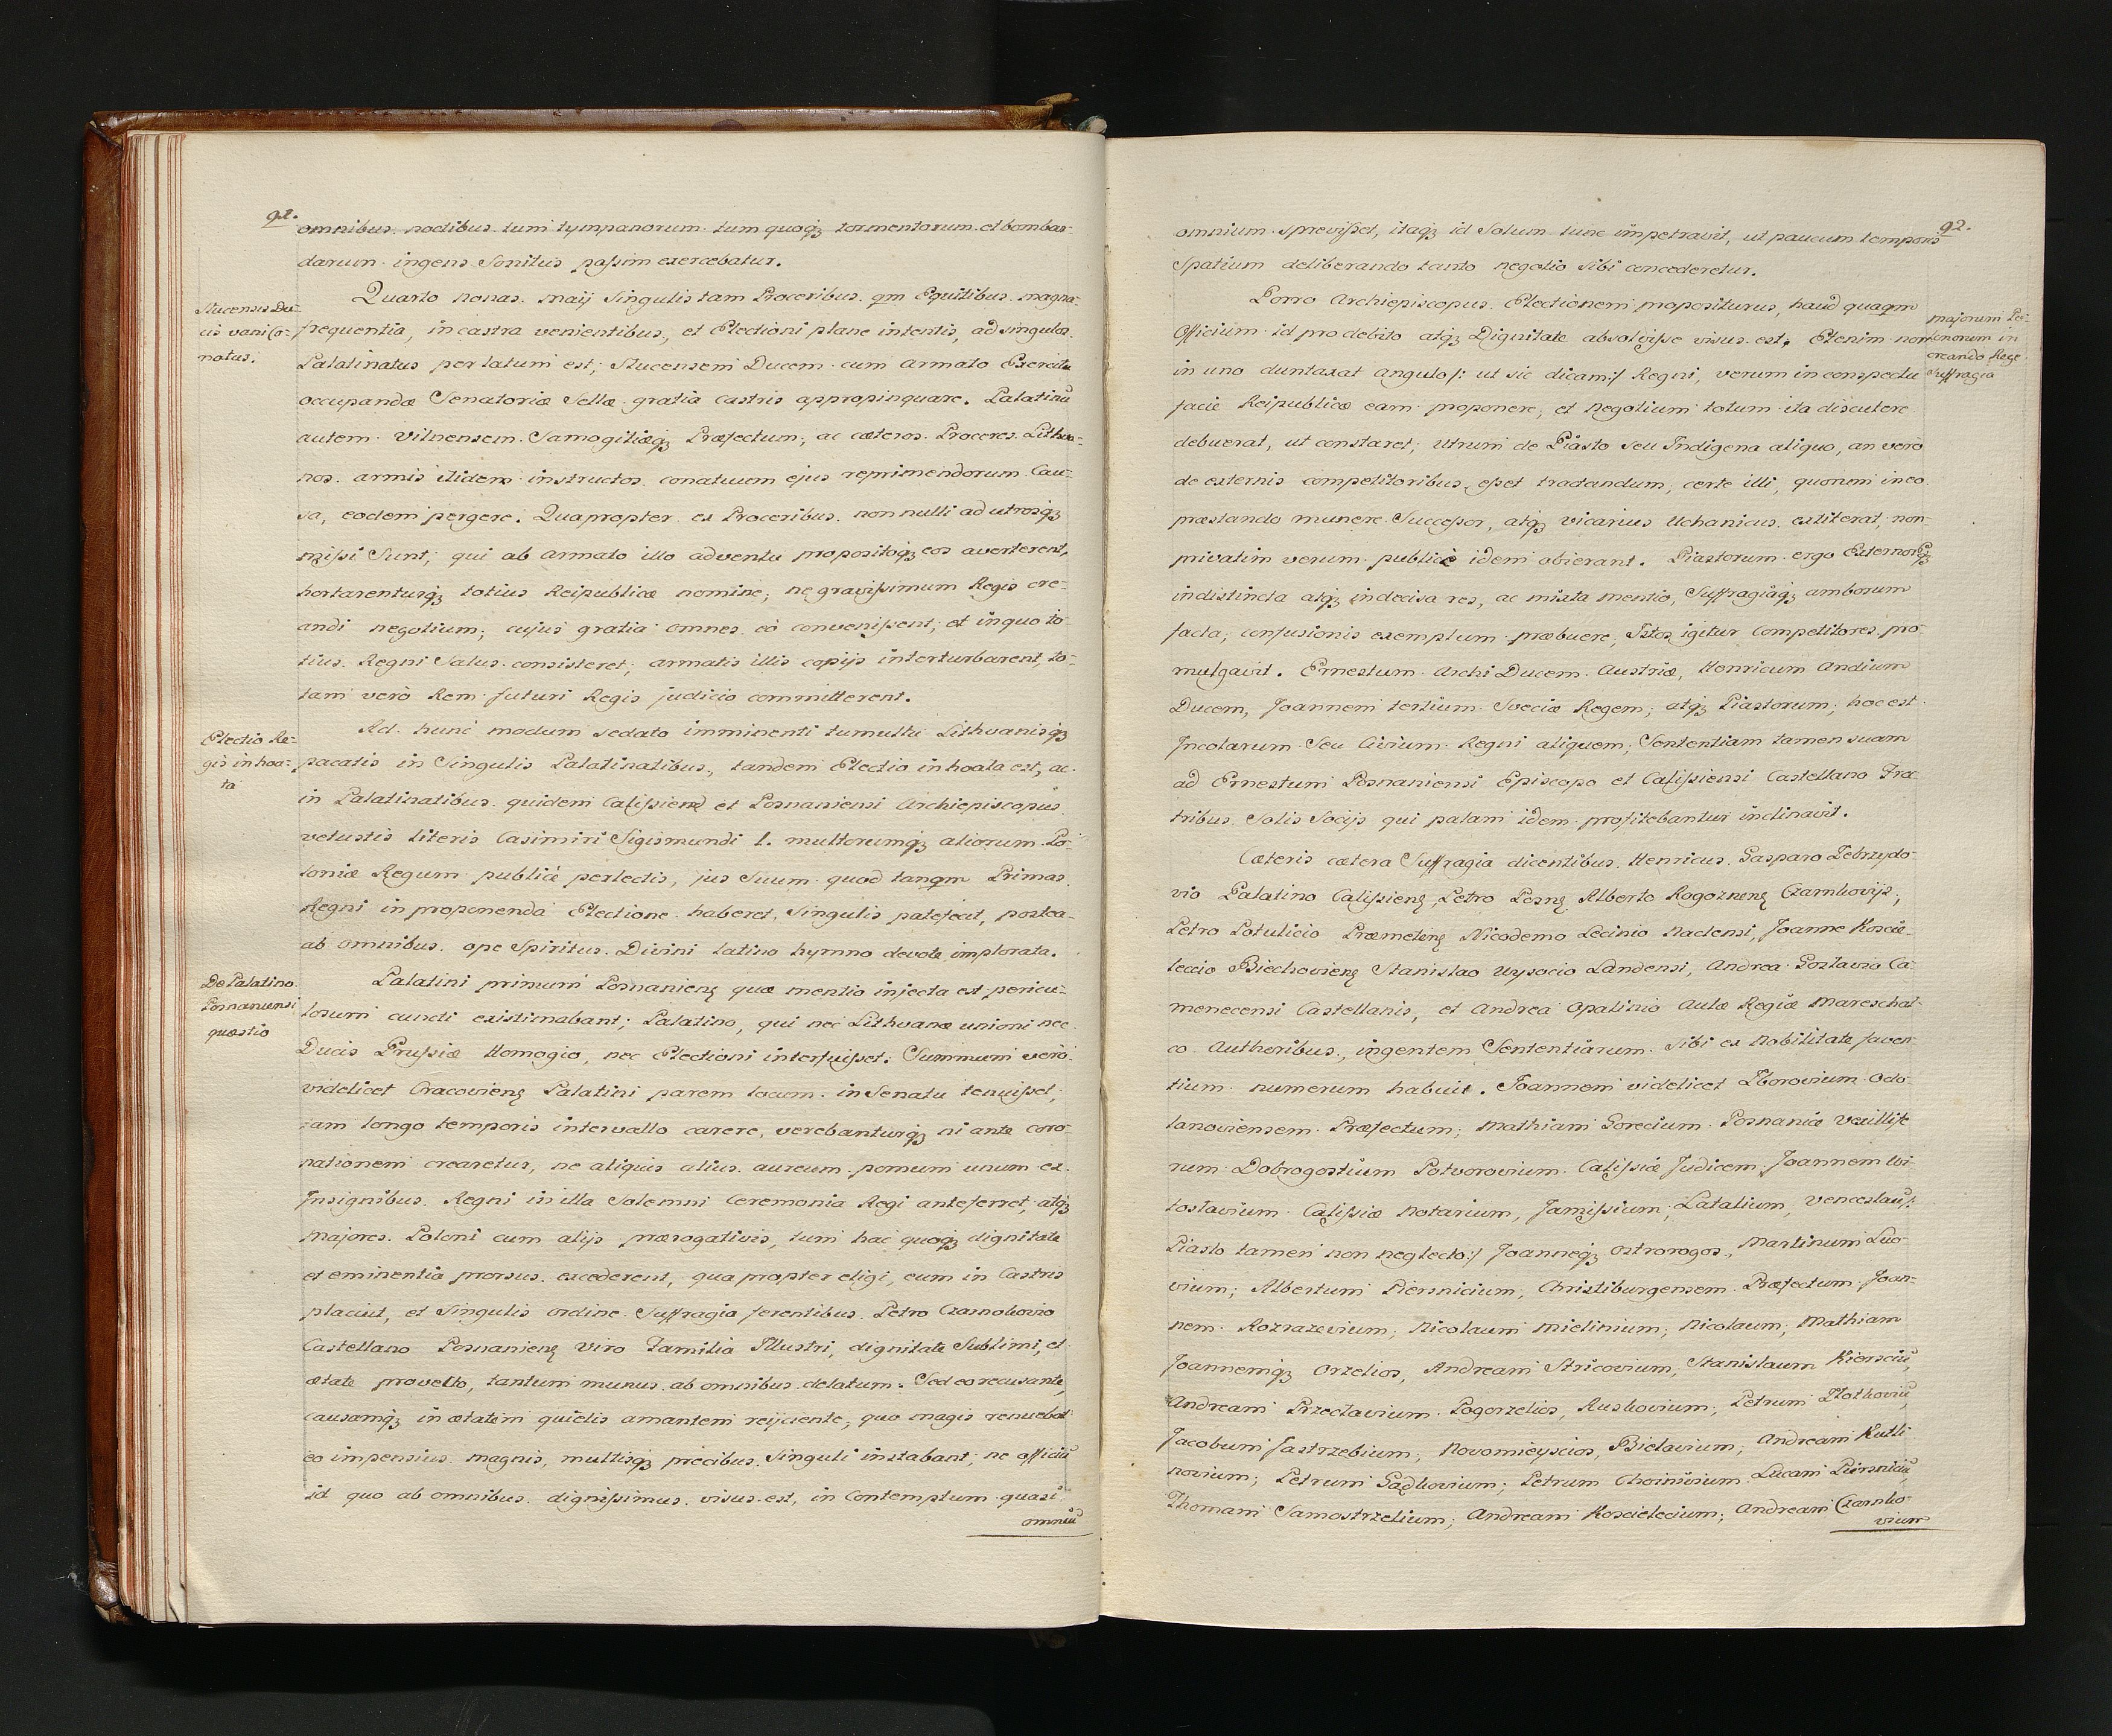 92.
omnibus noctibus tum tympanorum tum quoq3 tormentorum et bombar-
darum ingens Sonitus passim exercebatur.
Quarto nonas Maij Singulis tam Proceribus qm Equitibus magna
Slucensis Du-
cis vani Co-
natus.
frequentia, in castra venientibus, et Electioni plane intentis, ad singulos
Palatinatus perlatum est; Slucensem Ducem cum armato Exercitu
occupandæ Senatoriæ Sellæ gratia castris appropinquare. Palatinū
autem Vilnensem Samogitiæq3 Præfectum; ac cæteros Proceres Lithva-
nos armis itidem instructos conatuum ejus reprimendorum Cau-
sa, eodem pergere. Quapropter ex Proceribus non nulli ad utrosq3
missi Sunt; qui ab armato illo adventu propositoq3 eos averterent,
hortarenturq3 totius Reipublicæ nomine; ne gravissimum Regis cre-
andi negotium; cujus gratia omnes eò convenissent; et in quo to-
tius Regni Salus consisteret; armatis illis copijs interturbarent, to-
tam verò Rem futuri Regis judicio committerent.
Ad hunc modum sedato imminenti tumultu Lithvanisq3
Electio Re-
gis inhoa-
ta
pacatis in Singulis Palatinatibus, tandem Electio inhoata est, ac
in Palatinatibus quidem Calissien̄ et Posnaniensi Archiepiscopus
vetustis literis Casimiri Sigismundi I. multorumq3 aliorum Po-
loniæ Regum publicè perlectis, jus Suum quod tanqm Primas
Regni in proponenda Electione haberet, Singulis patefecit, postea
ab omnibus ope Spiritus Divini latino hymno devote implorata.
De Palatino
Posnaniensi
quæstio
Palatini primum Posnanien̄ quæ mentio injecta est pericu-
losum cuncti existimabant; Palatino, qui nec Lithvanæ unioni nec
Ducis Prussiæ Homogio, nec Electioni interfuisset. Summum verò
videlicet Cracovien̄ Palatini parem locum in Senatu tenuisset,
tam longo temporis intervallo carere, verebanturq3 ni ante coro-
nationem crearetur, ne aliquis alius aureum pomum unum ex
Insignibus Regni in illa Solemni Ceremonia Regi anteferret, atq3
Majores Poloni cum alijs prærogativis, tum hac quoq3 dignitate
et eminentia prorsus excederent, qua propter eligi, eum in Castris
placuit, et Singulis ordine Suffragia ferentibus Petro Czarnkovio
Castellano Posnanien̄ Viro Familia Illustri, dignitate Sublimi, et
ætate provecto, tantum munus ab omnibus delatum. Sed eo recusante,
causamq3 in ætatem quietis amantem reijciente, quo magis renuebat
eo impensius magnis, multisq3 precibus Singuli instabant; ne officiū
id quo ab omnibus dignissimus visus est, in Contemptum quasi
omniū
92.
omnium sprevisset, itaq3 id Solum tunc impetravit, ut paucum temporis
Spatium deliberando tanto negotio sibi concederetur.
Porro Archiepiscopus Electionem propositurus, haud quaqm
Majorum Po-
lonorum in
creando Rege
Suffragia
Officium id pro debito atq3 Dignitate absolvisse visus est. Etenim non
in uno duntaxat angulo /: ut sic dicam :/ Regni, verum in conspectu
facie Reipublicæ eam proponere, et negotium totum ita discutere
debuerat, ut constaret; utrum de Piasto seu Indigena aliquo, an vero
de externis competitoribus esset tractandum, certe illi, quorum in eo
præstando munere Successor, atq3 vicarius Uchanicus extiterat, non
privatim verum publicè idem obierant. Piastorum ergo Externorq3
indistincta atq3 indecisa res, ac mixta mentio, Suffragiaq3 amborum
facta, confusionis exemplum præbuere, Istos igitur Competitores pro-
mulgavit. Ernestum ArchiDucem Austriæ, Henricum Andium
Ducem, Joannem tertium Sveciæ Regem; atq3 Piastorum; hoc est
Incolarum Seu Civium Regni aliquem; Sententiam tamen suam
ad Ernestum Posnaniensi Episcopo et Calissiensi Castellano Fra-
tribus Solis Socijs qui palam idem profitebantur inclinavit.
Cæteris cætera Suffragia dicentibus Henricus Gasparo Zebrzydo-
vio Palatino Calissien̄, Petro Posn̄ Alberto Rogoznen̄ Czarnkovijs;
Petro Potulicio Præmeten̄ Nicodemo Lecinio Naclensi, Joanne Koscie-
leccio Biechovien̄ Stanislao Wysocio Landensi, Andrea Gostavio Ca-
menecensi Castellanis, et Andrea Opalinio Aulæ Regiæ Mareschal-
co Authoribus, ingentem Sententiarum Sibi ex Nobilitate faven-
tium numerum habuit. Joannem videlicet Zborovium Odo-
lanoviensem Præfectum; Mathiam Gorecium Posnaniæ Vexillife
rum Dobrogostium Potvorovium Calissiæ Judicem Joannem Wi-
toslavium Calissiæ Notarium, Jamissium, Latalium, Venceslaū /:
Piasto tamen non neglecto :/ Joanneq3 Ostrorogos, Martinum Luo-
vium; Albertum Piersnicium, Christiburgensem Præfectum Joan-
nem Rozrazevium, Nicolaum Mielinium; Nicolaum, Mathiam
Joannemq3 Orzelios, Andream Stricovium, Stanislaum Kiersciū,
Andream Przeclavium Pogorzelios, Ruskovium; Petrum Zlothoviū,
Jacobum Jastrzebium, Novomieyscios, Bielavium, Andream Kutli
novium; Petrum Gądkovium; Petrum Choinium Lucam Piersniciū,
Thomam Samostrzelium; Andream Koscielecium; Andream Czarnko-
vium